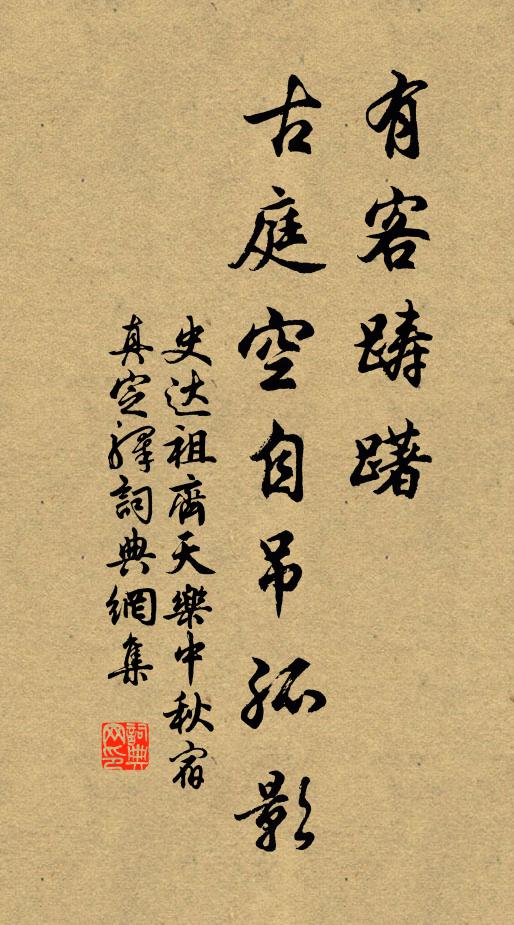 有客踌躇
古庭空自吊孤影
史达祖齊天樂中秋宿
真定驛詞典網集
詞典网印